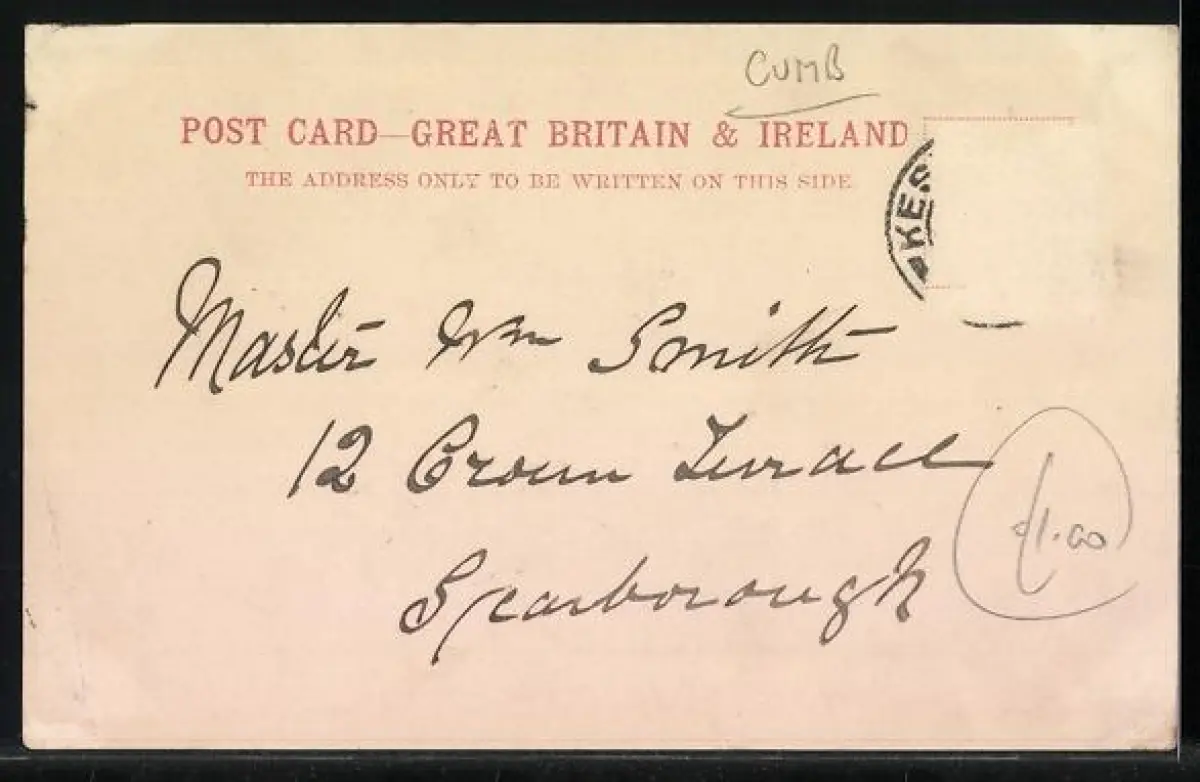 CUMB
POST CARD—GREAT BRITAIN & IRELAND
THE ADDRESS ONLY TO BE WRITTEN ON THIS SIDE
KES
Master Wm Smith
12 Crown Terrace
£1.00
Scarborough